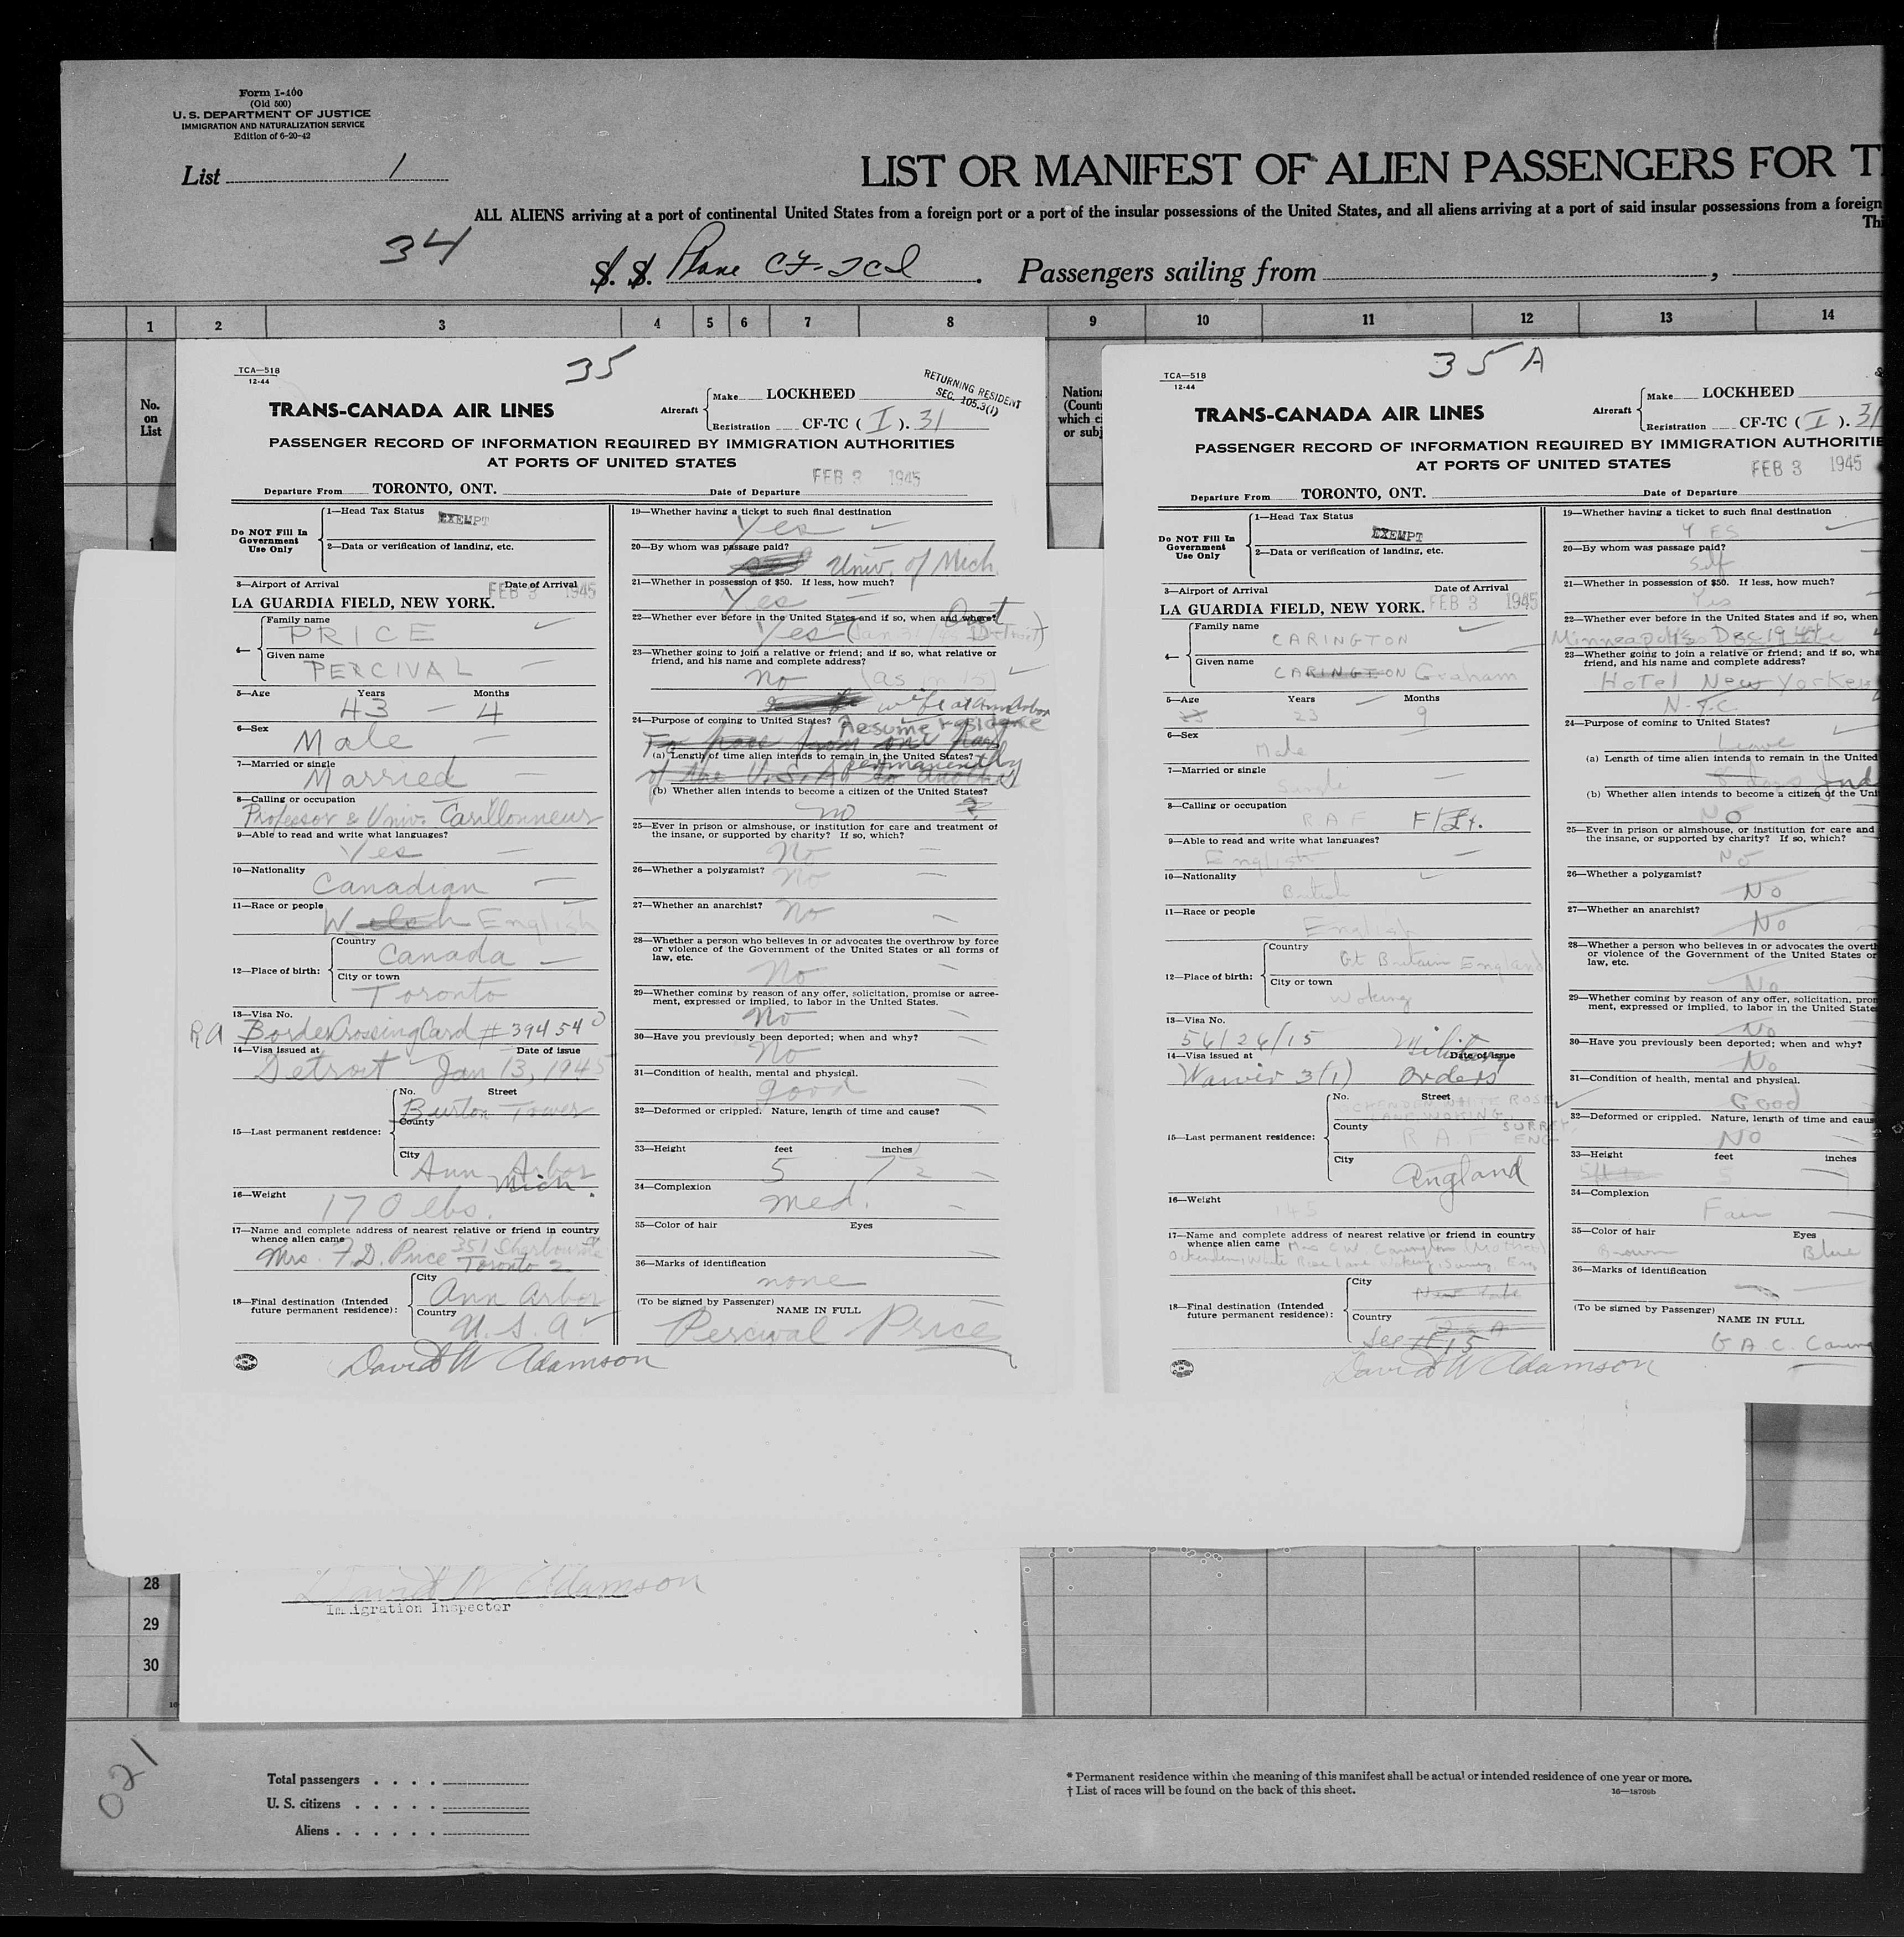 Form I-400
(Old 500)
U. S. DEPARTMENT OF JUSTICE
IMMIGRATION AND NATURALIZATION SERVICE
Edition of 6-20-42
List 1
LIST OR MANIFEST OF ALIEN PASSENGERS FOR T
ALL ALIENS arriving at a port of continental United States from a foreign port or a port of the insular possessions of the United States, and all aliens arriving at a port of said insular possessions from a foreign
Thi
34
S. S. Plane CF-TCI. Passengers sailing from ,
1 2 3 4 5 6 7 8 9 10 11 12 13 14
No.
on
List
1
TCA—518
12-44
35
RETURNING RESIDENT
SEC. 105.3(1)
TRANS-CANADA AIR LINES
Aircraft
Make LOCKHEED
Registration CF-TC ( I ). 31
PASSENGER RECORD OF INFORMATION REQUIRED BY IMMIGRATION AUTHORITIES
AT PORTS OF UNITED STATES
Departure From TORONTO, ONT.
Date of Departure FEB 3 1945
Do NOT Fill In
Government
Use Only
1—Head Tax Status EXEMPT
2—Data or verification of landing, etc.
3—Airport of Arrival
Date of Arrival
LA GUARDIA FIELD, NEW YORK. FEB 3 1945
4—
Family name
PRICE
Given name
PERCIVAL
5—Age Years Months
43 — 4
6—Sex
Male
7—Married or single
Married
8—Calling or occupation
Professor & Univ. Carillonneur
9—Able to read and write what languages?
Yes
10—Nationality
Canadian
11—Race or people
Welch English
12—Place of birth:
Country
Canada
City or town
Toronto
13—Visa No.
RA Border Crossing Card # 394540
14—Visa issued at Date of issue
Detroit Jan 13, 1945
15—Last permanent residence:
No. Street
Burton Tower
County
City
Ann Arbor
Mich.
16—Weight
170 lbs.
17—Name and complete address of nearest relative or friend in country
whence alien came
Mrs. F. D. Price 351 Sherbourne St
Toronto 2
18—Final destination (Intended
future permanent residence):
City
Ann Arbor
Country
U. S. A.
David W Adamson
19—Whether having a ticket to such final destination
Yes
20—By whom was passage paid?
Univ. of Mich.
21—Whether in possession of $50. If less, how much?
Yes
22—Whether ever before in the United States and if so, when and where?
Yes
23—Whether going to join a relative or friend; and if so, what relative or
friend, and his name and complete address?
no (as in 15)
wife at Ann Arbor
24—Purpose of coming to United States? Resume residence
To pass from one part
(a) Length of time alien intends to remain in the United States?
permanently
of the U.S.A. to another
(b) Whether alien intends to become a citizen of the United States?
no ?
25—Ever in prison or almshouse, or institution for care and treatment of
the insane, or supported by charity? If so, which?
No
26—Whether a polygamist?
No
27—Whether an anarchist?
No
28—Whether a person who believes in or advocates the overthrow by force
or violence of the Government of the United States or all forms of
law, etc.
No
29—Whether coming by reason of any offer, solicitation, promise or agree-
ment, expressed or implied, to labor in the United States.
No
30—Have you previously been deported; when and why?
No
31—Condition of health, mental and physical.
good
32—Deformed or crippled. Nature, length of time and cause?
33—Height feet inches
5 7½
34—Complexion
med.
35—Color of hair Eyes
36—Marks of identification
none
(To be signed by Passenger)
NAME IN FULL
Percival Price
Nationa
(Count
which c
or subj
TCA—518
12-44
35 A
TRANS-CANADA AIR LINES
Aircraft
Make LOCKHEED
Registration CF-TC ( I ). 31
PASSENGER RECORD OF INFORMATION REQUIRED BY IMMIGRATION AUTHORITIE
AT PORTS OF UNITED STATES
FEB 3 1945
Departure From TORONTO, ONT.
Date of Departure
Do NOT Fill In
Government
Use Only
1—Head Tax Status
EXEMPT
2—Data or verification of landing, etc.
3—Airport of Arrival
Date of Arrival
LA GUARDIA FIELD, NEW YORK. FEB 3 1945
4—
Family name
CARINGTON
Given name
CARINGTON Graham
5—Age Years Months
23 23 9
6—Sex
Male
7—Married or single
Single
8—Calling or occupation
RAF F/Lt.
9—Able to read and write what languages?
English
10—Nationality
British
11—Race or people
English
12—Place of birth:
Country
Gt Britain England
City or town
Woking
13—Visa No.
56/26/15 Military
14—Visa issued at Date of Issue
Waiver 3(1) Orders
15—Last permanent residence:
No. Street
WHITE ROSE
LANE WOKING
County
SURREY
RAF ENG
City
England
16—Weight
145
17—Name and complete address of nearest relative or friend in country
whence alien came Mrs C W Carington (Mother)
White Rose Lane Woking, Surrey Eng
18—Final destination (Intended
future permanent residence):
City
New York
Country
U S A
See # 15
David W Adamson
19—Whether having a ticket to such final destination
YES
20—By whom was passage paid?
Self
21—Whether in possession of $50. If less, how much?
Yes
22—Whether ever before in the United States and if so, when
Minneapolis Dec 1944
23—Whether going to join a relative or friend; and if so, wha
friend, and his name and complete address?
Hotel New Yorker
N.Y.C.
24—Purpose of coming to United States?
Leave
(a) Length of time alien intends to remain in the United
Ind
(b) Whether alien intends to become a citizen of the Uni
No
25—Ever in prison or almshouse, or institution for care and
the insane, or supported by charity? If so, which?
No
26—Whether a polygamist?
No
27—Whether an anarchist?
No
28—Whether a person who believes in or advocates the overth
or violence of the Government of the United States or
law, etc.
No
29—Whether coming by reason of any offer, solicitation, pro
ment, expressed or implied, to labor in the United State
No
30—Have you previously been deported; when and why?
No
31—Condition of health, mental and physical.
Good
32—Deformed or crippled. Nature, length of time and caus
No
33—Height feet inches
5 9
34—Complexion
Fair
35—Color of hair Eyes
Brown Blue
36—Marks of identification
(To be signed by Passenger)
NAME IN FULL
G A. C. Caring
28
29
30
David W. Adamson
Immigration Inspector
021
Total passengers
U. S. citizens
Aliens
* Permanent residence within the meaning of this manifest shall be actual or intended residence of one year or more.
† List of races will be found on the back of this sheet.
16—18709b